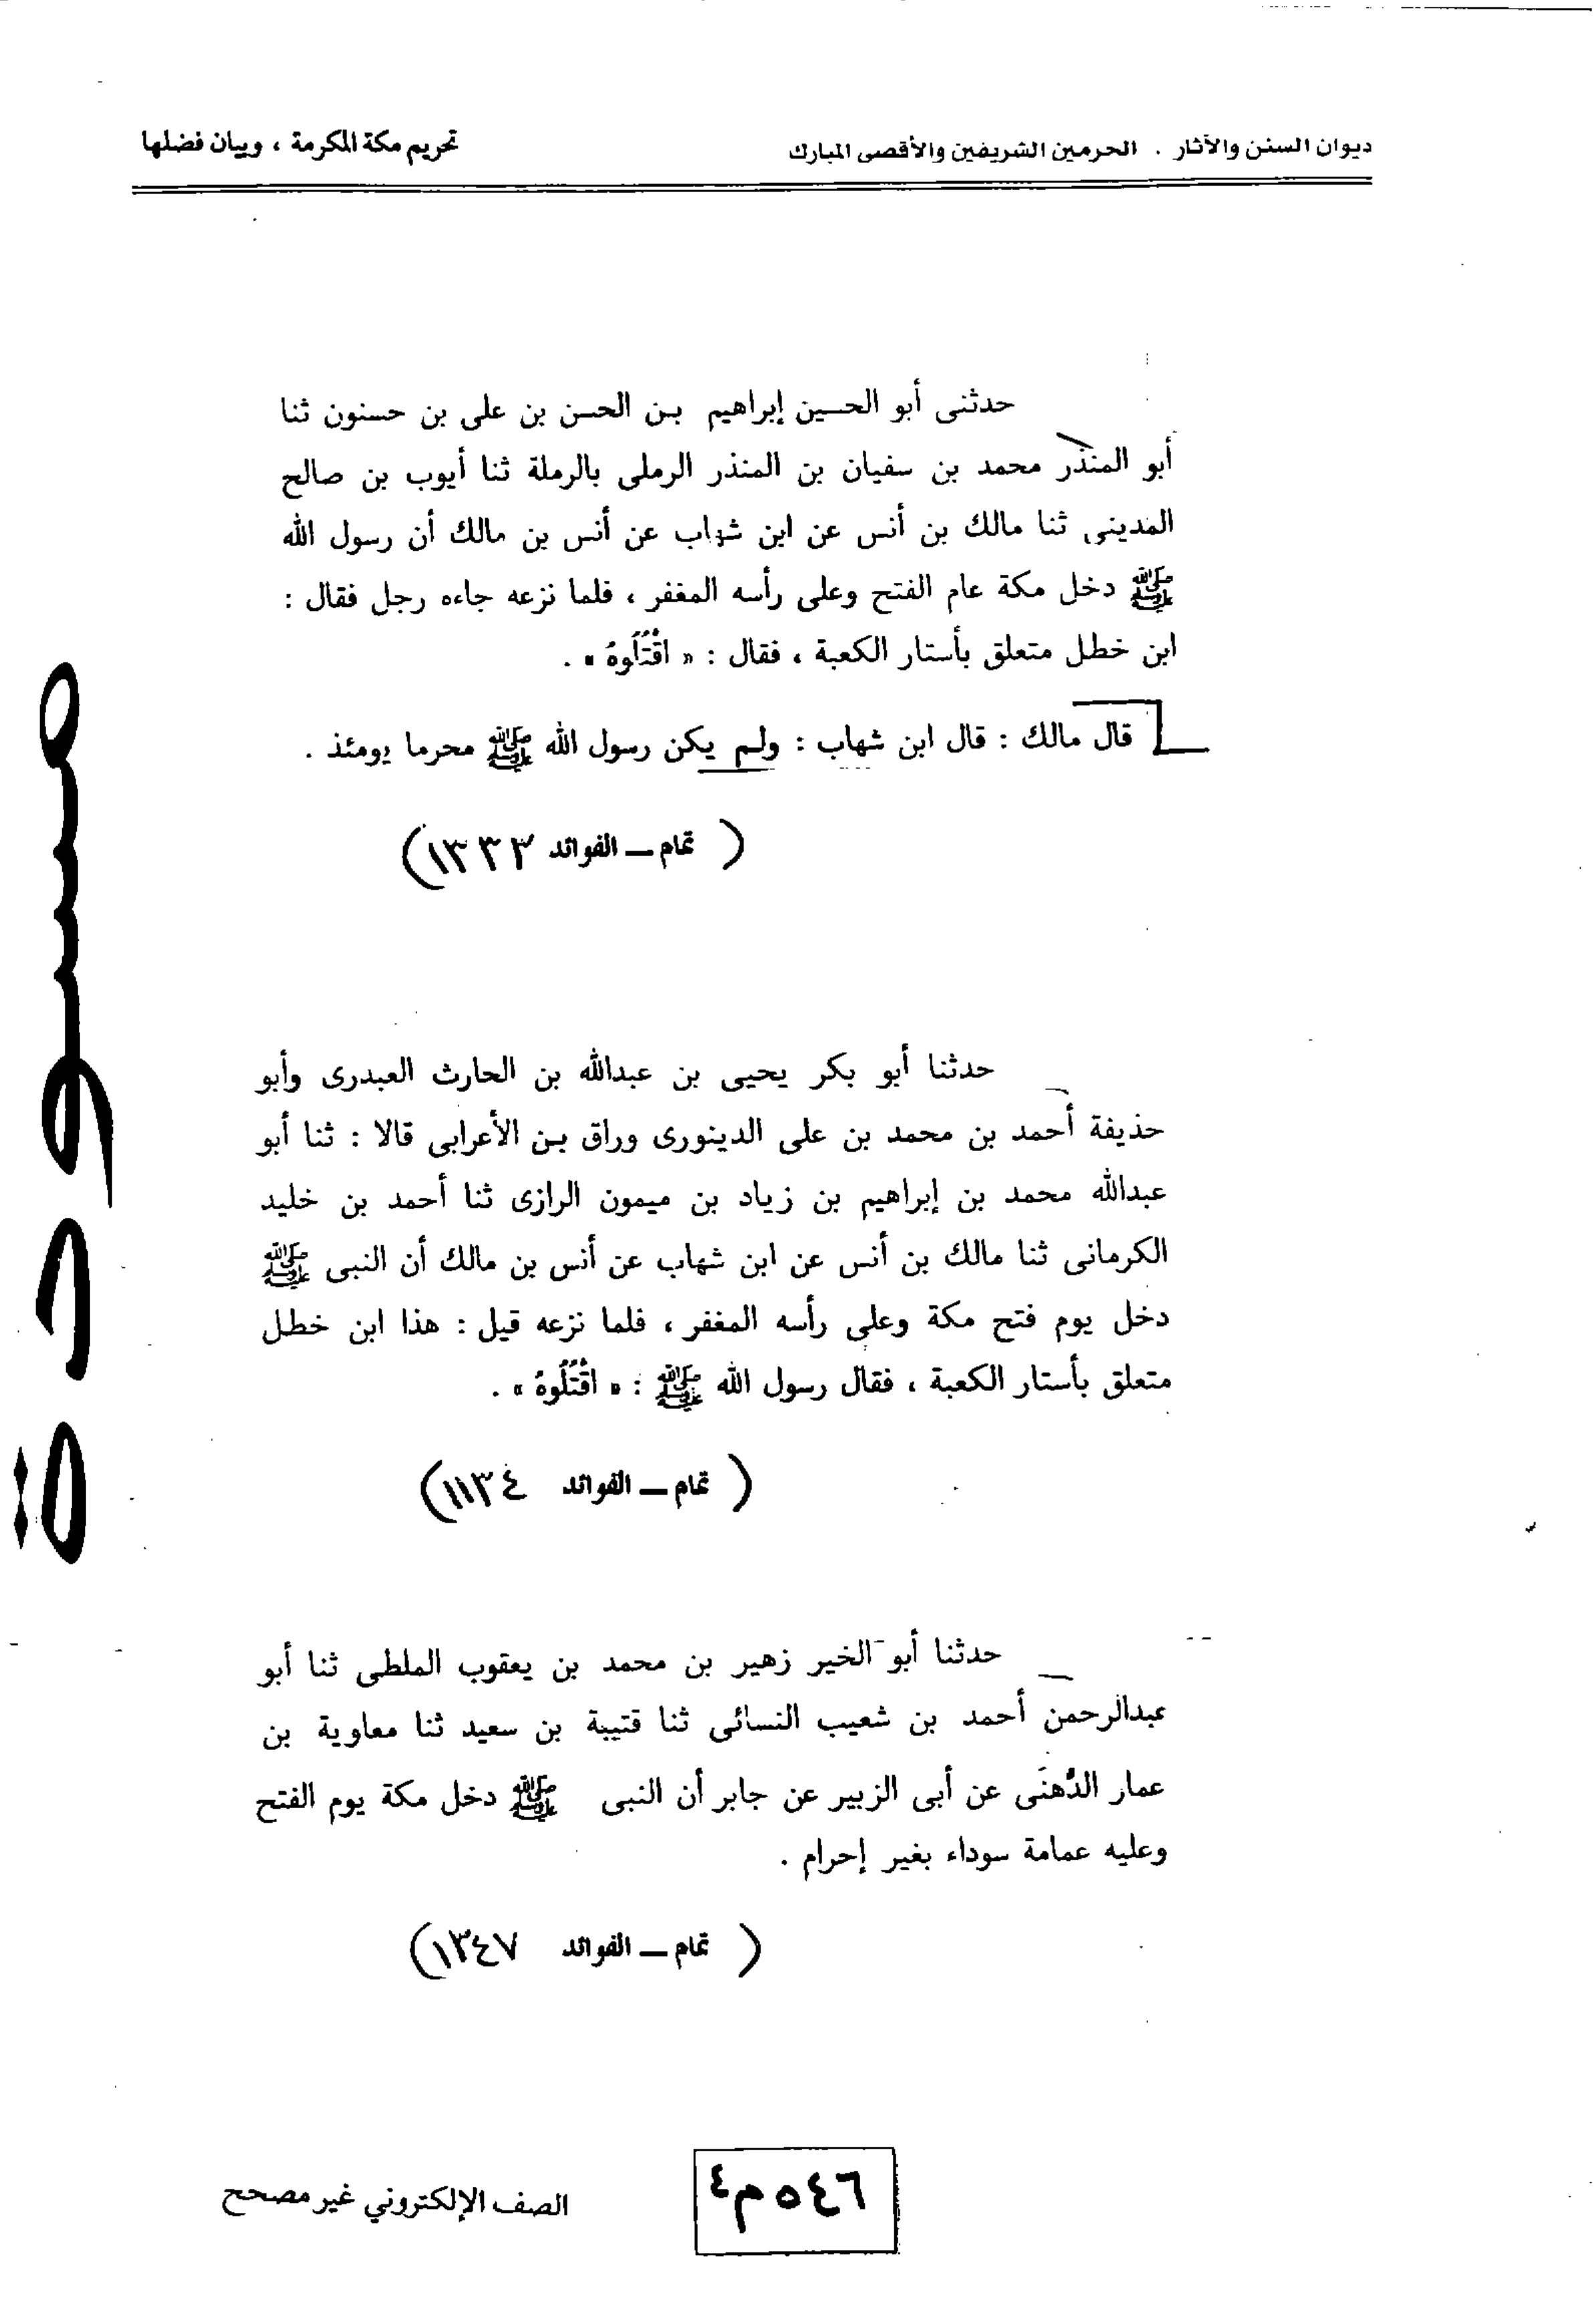 ديوان السنن والآثار . الحرمين الشريفين والأقصى المبارك
تحريم مكة المكرمة ، وبيان فضلها
حدثنى أبو الحسين إبراهيم بن الحسن بن على بن حسنون ثنا
أبو المنذر محمد بن سفيان بن المنذر الرملى بالرملة ثنا أيوب بن صالح
المدينى ثنا مالك بن أنس عن ابن شهاب عن أنس بن مالك أن رسول الله
ﷺ دخل مكة عام الفتح وعلى رأسه المغفر ، فلما نزعه جاءه رجل فقال :
ابن خطل متعلق بأستار الكعبة ، فقال : « اقْتُلُوهُ » .
قال مالك : قال ابن شهاب : ولم يكن رسول الله ﷺ محرما يومئذ .
( تمام ـ الفوائد ١٣٣٣)
حدثنا أبو بكر يحيى بن عبدالله بن الحارث العبدرى وأبو
حذيفة أحمد بن محمد بن على الدينورى وراق بن الأعرابى قالا : ثنا أبو
عبدالله محمد بن إبراهيم بن زياد بن ميمون الرازى ثنا أحمد بن خليد
الكرمانى ثنا مالك بن أنس عن ابن شهاب عن أنس بن مالك أن النبى ﷺ
دخل يوم فتح مكة وعلى رأسه المغفر ، فلما نزعه قيل : هذا ابن خطل
متعلق بأستار الكعبة ، فقال رسول الله ﷺ : « اقْتُلُوهُ » .
( تمام ـ الفوائد ١١٣٤)
حدثنا أبو الخير زهير بن محمد بن يعقوب الملطى ثنا أبو
عبدالرحمن أحمد بن شعيب النسائى ثنا قتيبة بن سعيد ثنا معاوية بن
عمار الدُّهنَى عن أبى الزبير عن جابر أن النبى ﷺ دخل مكة يوم الفتح
وعليه عمامة سوداء بغير إحرام .
( تمام ـ الفوائد ١٣٤٧)
مسودة
٥٤٦ م٤
الصف الإلكتروني غير مصحح